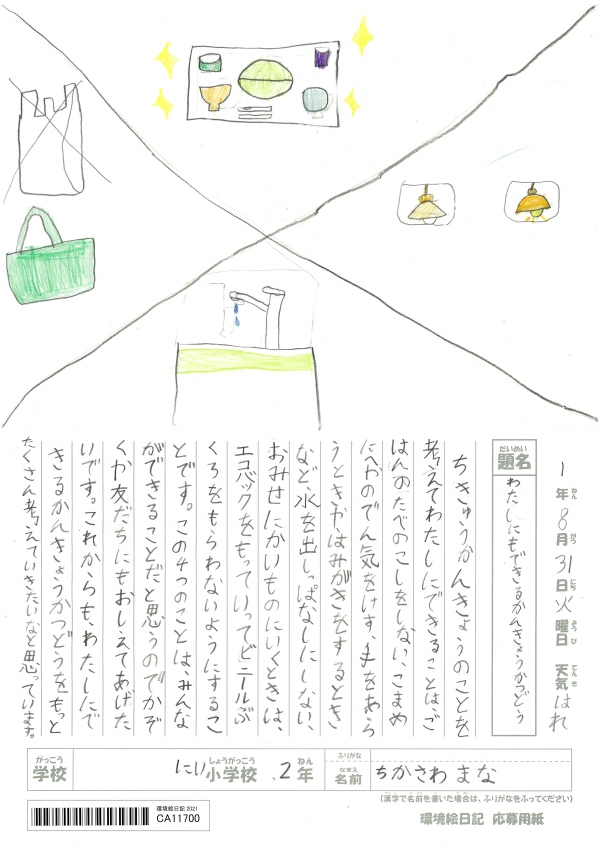 1年ねん8月がつ31日にち火曜日ようび 天気てんきはれ
題名だいめい わたしにもできるかんきょうかつどう
ちきゅうかんきょうのことを
考えてわたしにできることはご
はんのたべのこしをしない、こまめ
にへやのでん気をけす、手をあら
うときや、はみがきをするとき
など、水を出しっぱなしにしない、
おみせにかいものにいくときは、
エコバックをもっていってビニールぶ
くろをもらわないようにするこ
とです。この4つのことは、みんな
ができることだと思うのでかぞ
くや友だちにもおしえてあげた
いです。これからも、わたしにで
きるかんきょうかつどうをもっと
たくさん考えていきたいなと思っています。
学校がっこう にい小学校しょうがっこう 2年ねん
ふりがな
名前なまえ ちかさわ まな
(漢字で名前を書いた場合は、ふりがなをふってください)
環境絵日記 2021
CA11700
環境絵日記 応募用紙